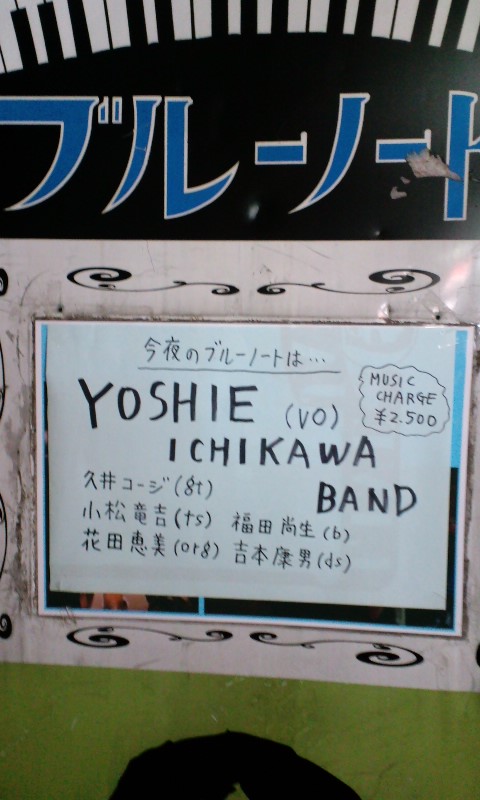 ブルーノート
今夜のブルーノートは…
YOSHIE (VO)
ICHIKAWA
BAND
MUSIC
CHARGE
¥2.500
久井コージ(gt)
小松竜吉(ts) 福田尚生(b)
花田恵美(org) 吉本康男(ds)